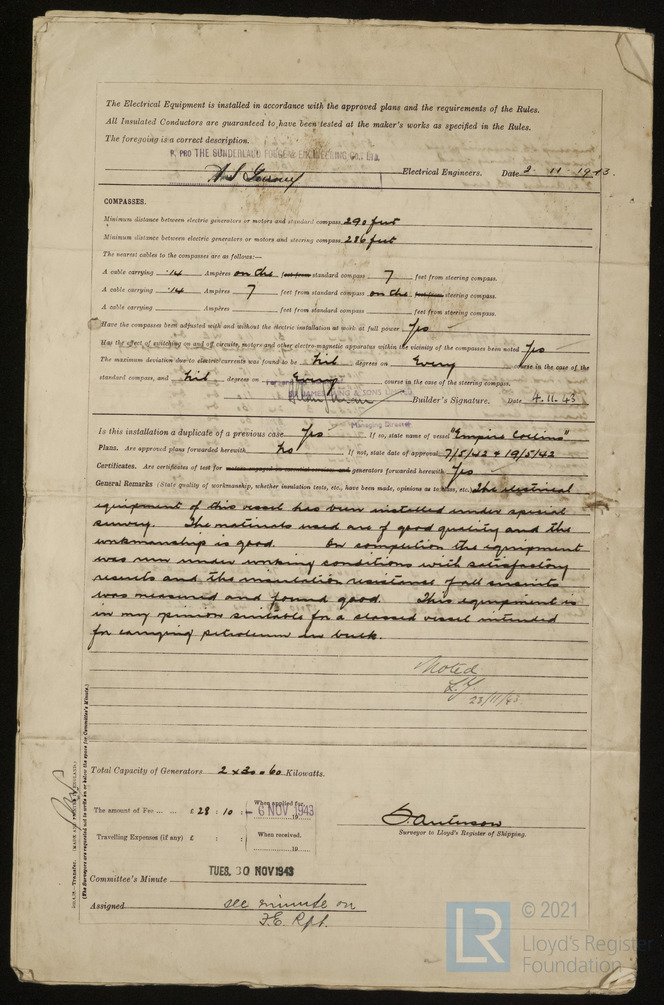 The Electrical Equipment is installed in accordance with the approved plans and the requirements of the Rules.
All Insulated Conductors are guaranteed to have been tested at the maker's works as specified in the Rules.
The foregoing is a correct description.
P. PRO THE SUNDERLAND FORGE & ENGINEERING CO., LTD.
Electrical Engineers. Date 2 . 11 . 1943.
COMPASSES.
Minimum distance between electric generators or motors and standard compass 290 feet
Minimum distance between electric generators or motors and steering compass 286 feet
The nearest cables to the compasses are as follows:—
A cable carrying .14 Ampères on the feet from standard compass 7 feet from steering compass.
A cable carrying .14 Ampères 7 feet from standard compass on the feet from steering compass.
A cable carrying Ampères feet from standard compass feet from steering compass.
Have the compasses been adjusted with and without the electric installation at work at full power Yes
Has the effect of switching on and off circuits, motors and other electro-magnetic apparatus within the vicinity of the compasses been noted Yes
The maximum deviation due to electric currents was found to be Nil degrees on Every course in the case of the
standard compass, and Nil degrees on Every course in the case of the steering compass.
For and
SIR JAMES LAING & SONS LIMITED
Builder's Signature. Date 4.11.43
Managing Director
Is this installation a duplicate of a previous case Yes If so, state name of vessel "Empire Collins"
Plans. Are approved plans forwarded herewith No If not, state date of approval 7/5/42 & 19/5/42
Certificates. Are certificates of test for motors engaged on essential services and generators forwarded herewith Yes
General Remarks (State quality of workmanship, whether insulation tests, etc., have been made, opinions as to class, etc.) The electrical
equipment of this vessel has been installed under special
survey. The materials used are of good quality and the
workmanship is good. On completion the equipment
was run under working conditions with satisfactory
results and the insulation resistance of all circuits
was measured and found good. This equipment is
in my opinion suitable for a classed vessel intended
for carrying petroleum in bulk.
Noted
23/11/43
Total Capacity of Generators 2 x 30 = 60 Kilowatts.
The amount of Fee ... ... £ 28 : 10 : - When applied for, 6 NOV 1943
Travelling Expenses (if any) £ : : When received, 19
Surveyor to Lloyd's Register of Shipping.
Committee's Minute TUES. 30 NOV 1943
Assigned see minute on
F.E. Rpt.
Transfer. (MADE AND PRINTED IN ENGLAND.)
(The Surveyors are requested not to write on or below the space for Committee's Minute.)
LR
© 2021
Lloyd's Register
Foundation